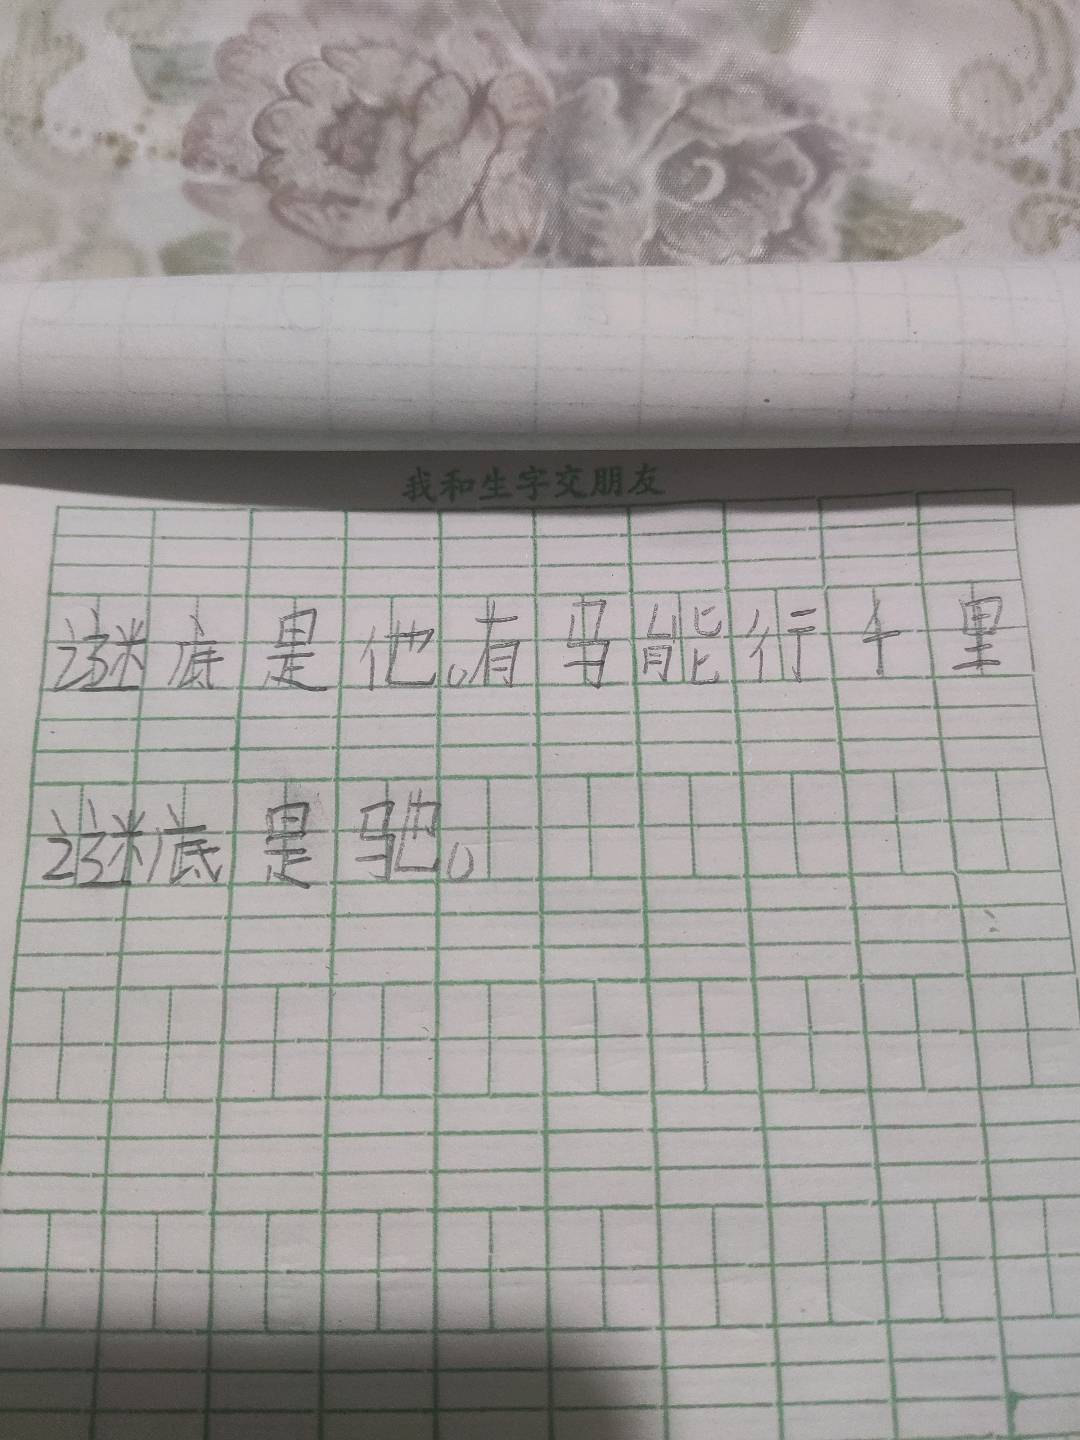 我和生字交朋友
谜底是他。有马能行千里
谜底是驰。